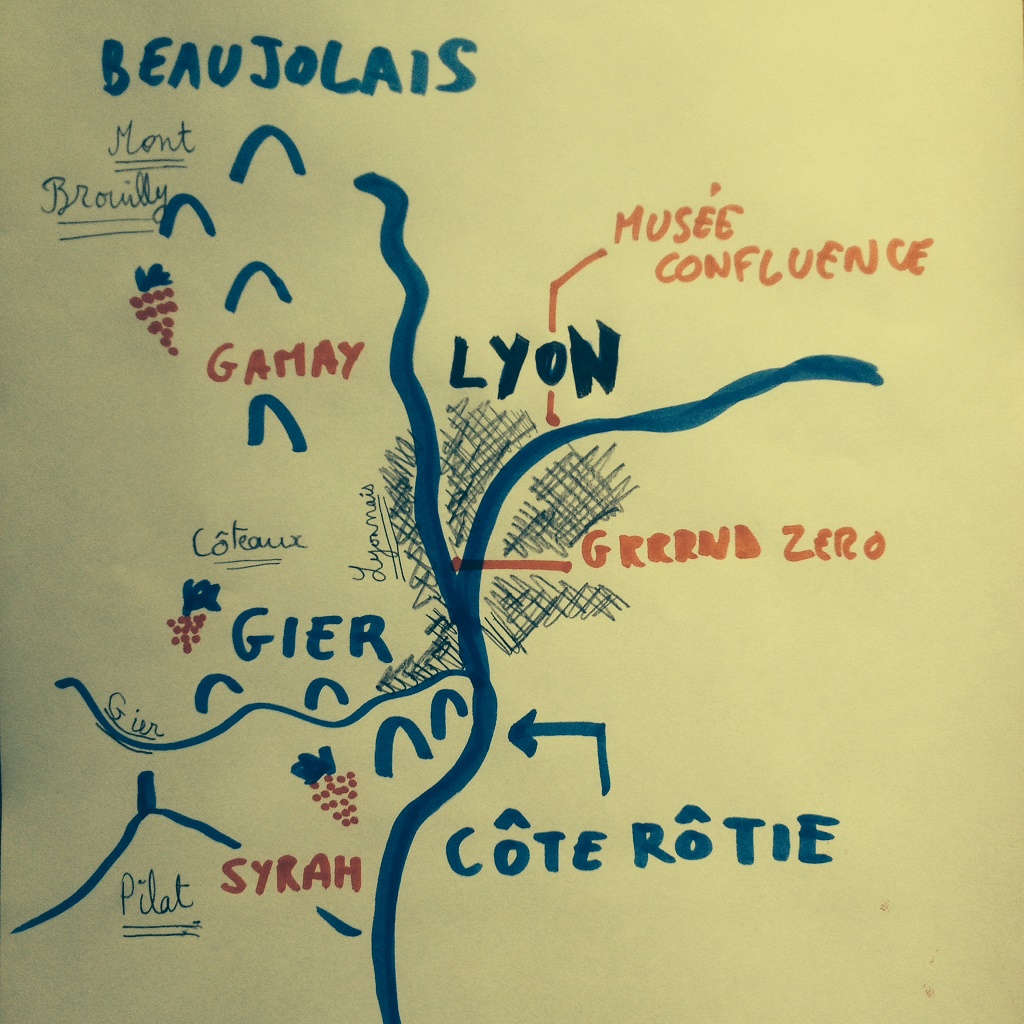 BEAUJOLAIS
Mont
Brouilly
MUSÉE
CONFLUENCE
LYON
GAMAY
Lyonnais
Côteaux
GRRRND ZERO
GIER
Gier
CÔTE RÔTIE
SYRAH
Pilat